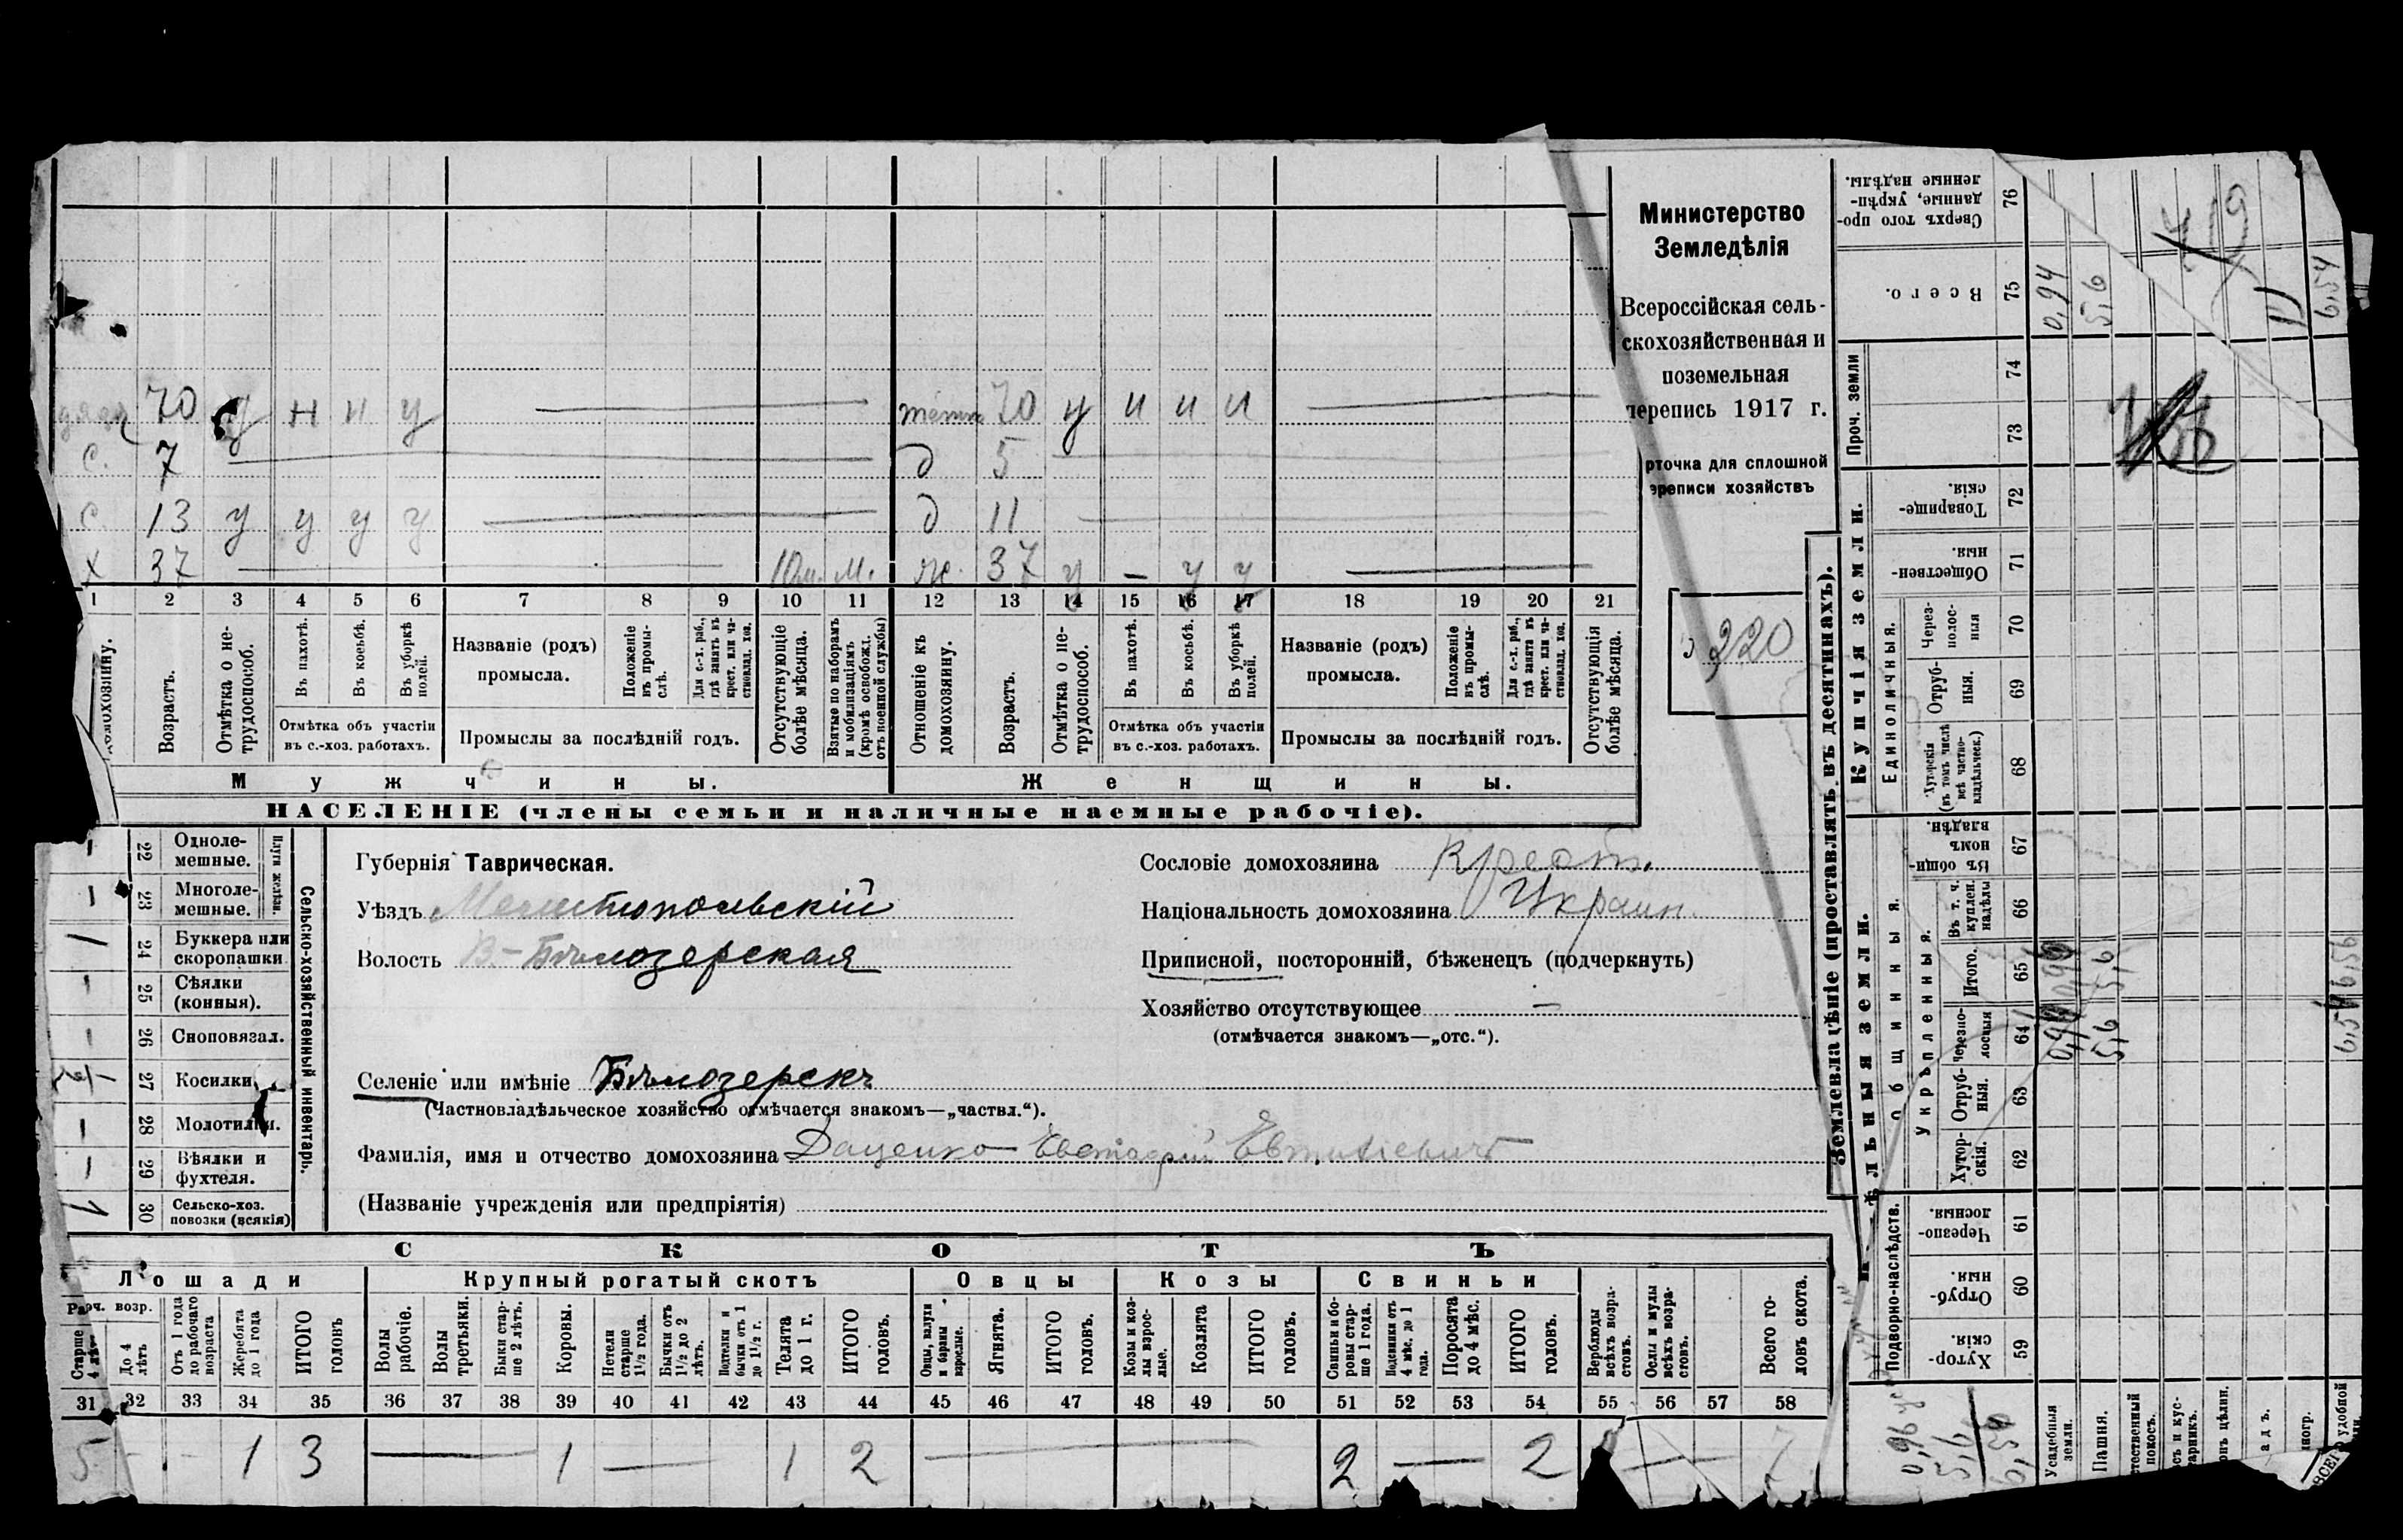 Министерство
Земледѣлія
Всероссійская сель-
скохозяйственная и
поземельная
перепись 1917 г.
рточка для сплошной
ереписи хозяйствъ
220
70 у н н у 70 у и и и
С. 7 д 5
С. 13 у у у у д 11
Х 37 10м. м. ж. 37 у — у у
1 2 3 4 5 6 7 8 9 10 11 12 13 14 15 16 17 18 19 20 21
домохозяину.
Возрастъ.
Отмѣтка о не-
трудоспособ.
Въ пахотѣ.
Въ косьбѣ.
Въ уборкѣ
полей.
Отмѣтка объ участіи
въ с.-хоз. работахъ.
Названіе (родъ)
промысла.
Положеніе
въ промы-
слѣ.
Для с.-х. раб.,
гдѣ занятъ въ
крест. или ча-
стновлад. хоз.
Промыслы за послѣдній годъ.
Отсутствующіе
болѣе мѣсяца.
Взятые по наборамъ
и мобилизаціямъ
(кромѣ освобожд.
отъ военной службы)
Отношеніе къ
домохозяину.
Возрастъ.
Отмѣтка о не-
трудоспособ.
Въ пахотѣ.
Въ косьбѣ.
Въ уборкѣ
полей.
Отмѣтка объ участіи
въ с.-хоз. работахъ.
Названіе (родъ)
промысла.
Положеніе
въ промы-
слѣ.
Для с.-х. раб.,
гдѣ занята въ
крест. или ча-
стновлад. хоз.
Промыслы за послѣдній годъ.
Отсутствующія
болѣе мѣсяца.
Мужчины. Женщины.
НАСЕЛЕНІЕ (члены семьи и наличные наемные рабочіе).
22 Одноле-
мешные.
23 Многоле-
мешные.
Плуги желѣзн.
24 Буккера или
скоропашки
25 Сѣялки
(конныя).
26 Сноповязал.
27 Косилки
28 Молотилки.
29 Вѣялки и
фухтеля.
30 Сельско-хоз.
повозки (всякія)
1
Сельско-хозяйственный инвентарь.
Губернія Таврическая.
Уѣздъ Мелитопольскій
Волость В.-Бѣлозерская
Селеніе или имѣніе Бѣлозерскъ
(Частновладѣльческое хозяйство отмѣчается знакомъ—„частвл.“).
Фамилія, имя и отчество домохозяина Даценко Евстафій Евтихіевичъ
(Названіе учрежденія или предпріятія)
Сословіе домохозяина Крест.
Національность домохозяина Украин.
Приписной, посторонній, бѣженецъ (подчеркнуть)
Хозяйство отсутствующее —
(отмѣчается знакомъ—„отс.“).
СКОТЪ
Лошади Крупный рогатый скотъ Овцы Козы Свиньи
Рабоч. возр.
Старше
4 лѣтъ
До 4
лѣтъ
Отъ 1 года
до рабочаго
возраста
Жеребята
до 1 года
ИТОГО
головъ
Волы
рабочіе.
Волы
третьяки.
Быки стар-
ше 2 лѣтъ.
Коровы.
Нетели
старше
1½ года.
Бычки отъ
1½ до 2
лѣтъ.
Подтелки и
бычки отъ 1
до 1½ г.
Телята
до 1 г.
ИТОГО
головъ.
Овцы, валухи
и бараны
взрослые.
Ягнята.
ИТОГО
головъ.
Козы и коз-
лы взрос-
лые.
Козлята
ИТОГО
головъ.
Свиньи и бо-
ровы стар-
ше 1 года.
Подсвинки отъ
4 мѣс. до 1
года.
Поросята
до 4 мѣс.
ИТОГО
головъ.
Верблюды
всѣхъ возра-
стовъ.
Ослы и мулы
всѣхъ возра-
стовъ.
Всего го-
ловъ скота.
31 32 33 34 35 36 37 38 39 40 41 42 43 44 45 46 47 48 49 50 51 52 53 54 55 56 57 58
1 3 — 1 — 1 2 — 2 — 2 — 7
Землевладѣніе (проставлять въ десятинахъ).
Купчія земли.
Проч. земли
Единоличныя.
Сверхъ того про-
данные, укрѣп-
ленные надѣлы.
76
Всего.
75
74
73
Товарище-
скія.
72
Обществен-
ныя.
71
Через-
полос-
ныя
70
Отруб-
ныя.
69
Хуторскія
(въ томъ числѣ
всѣ частно-
владѣльческ.)
68
Общинныя.
Въ общин-
номъ
владѣн.
67
Укрѣпленныя.
Въ т. ч.
куплен.
надѣлы
66
Итого.
65
Черезпо-
лосныя
64
Отруб-
ныя.
63
Хутор-
скія.
62
Подворно-наслѣдств.
Черезпо-
лосныя.
61
Отруб-
ныя.
60
Хутор-
скія.
59
0,94
5,6
6,54
5,6
5,6
Усадебныя
земли.
Пашня.